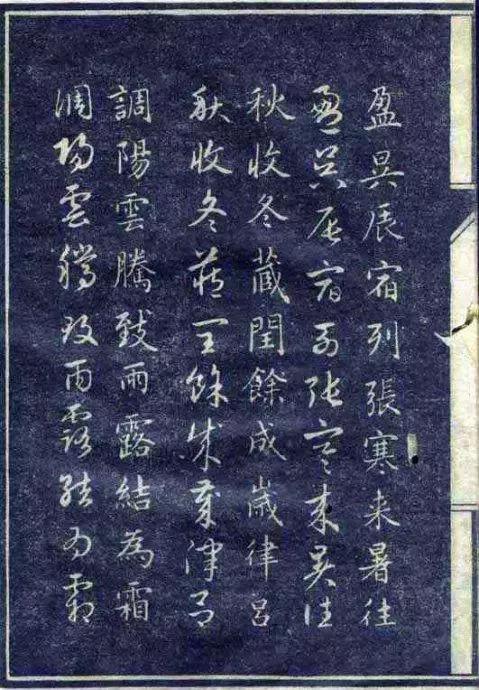 盈昃辰宿列張寒来暑往
盈昃辰宿列張寒来暑往
秋收冬蔵閏餘成歲律呂
秋收冬藏閏餘成歲律呂
調陽雲騰致雨露結為霜
調陽雲騰致雨露結為霜